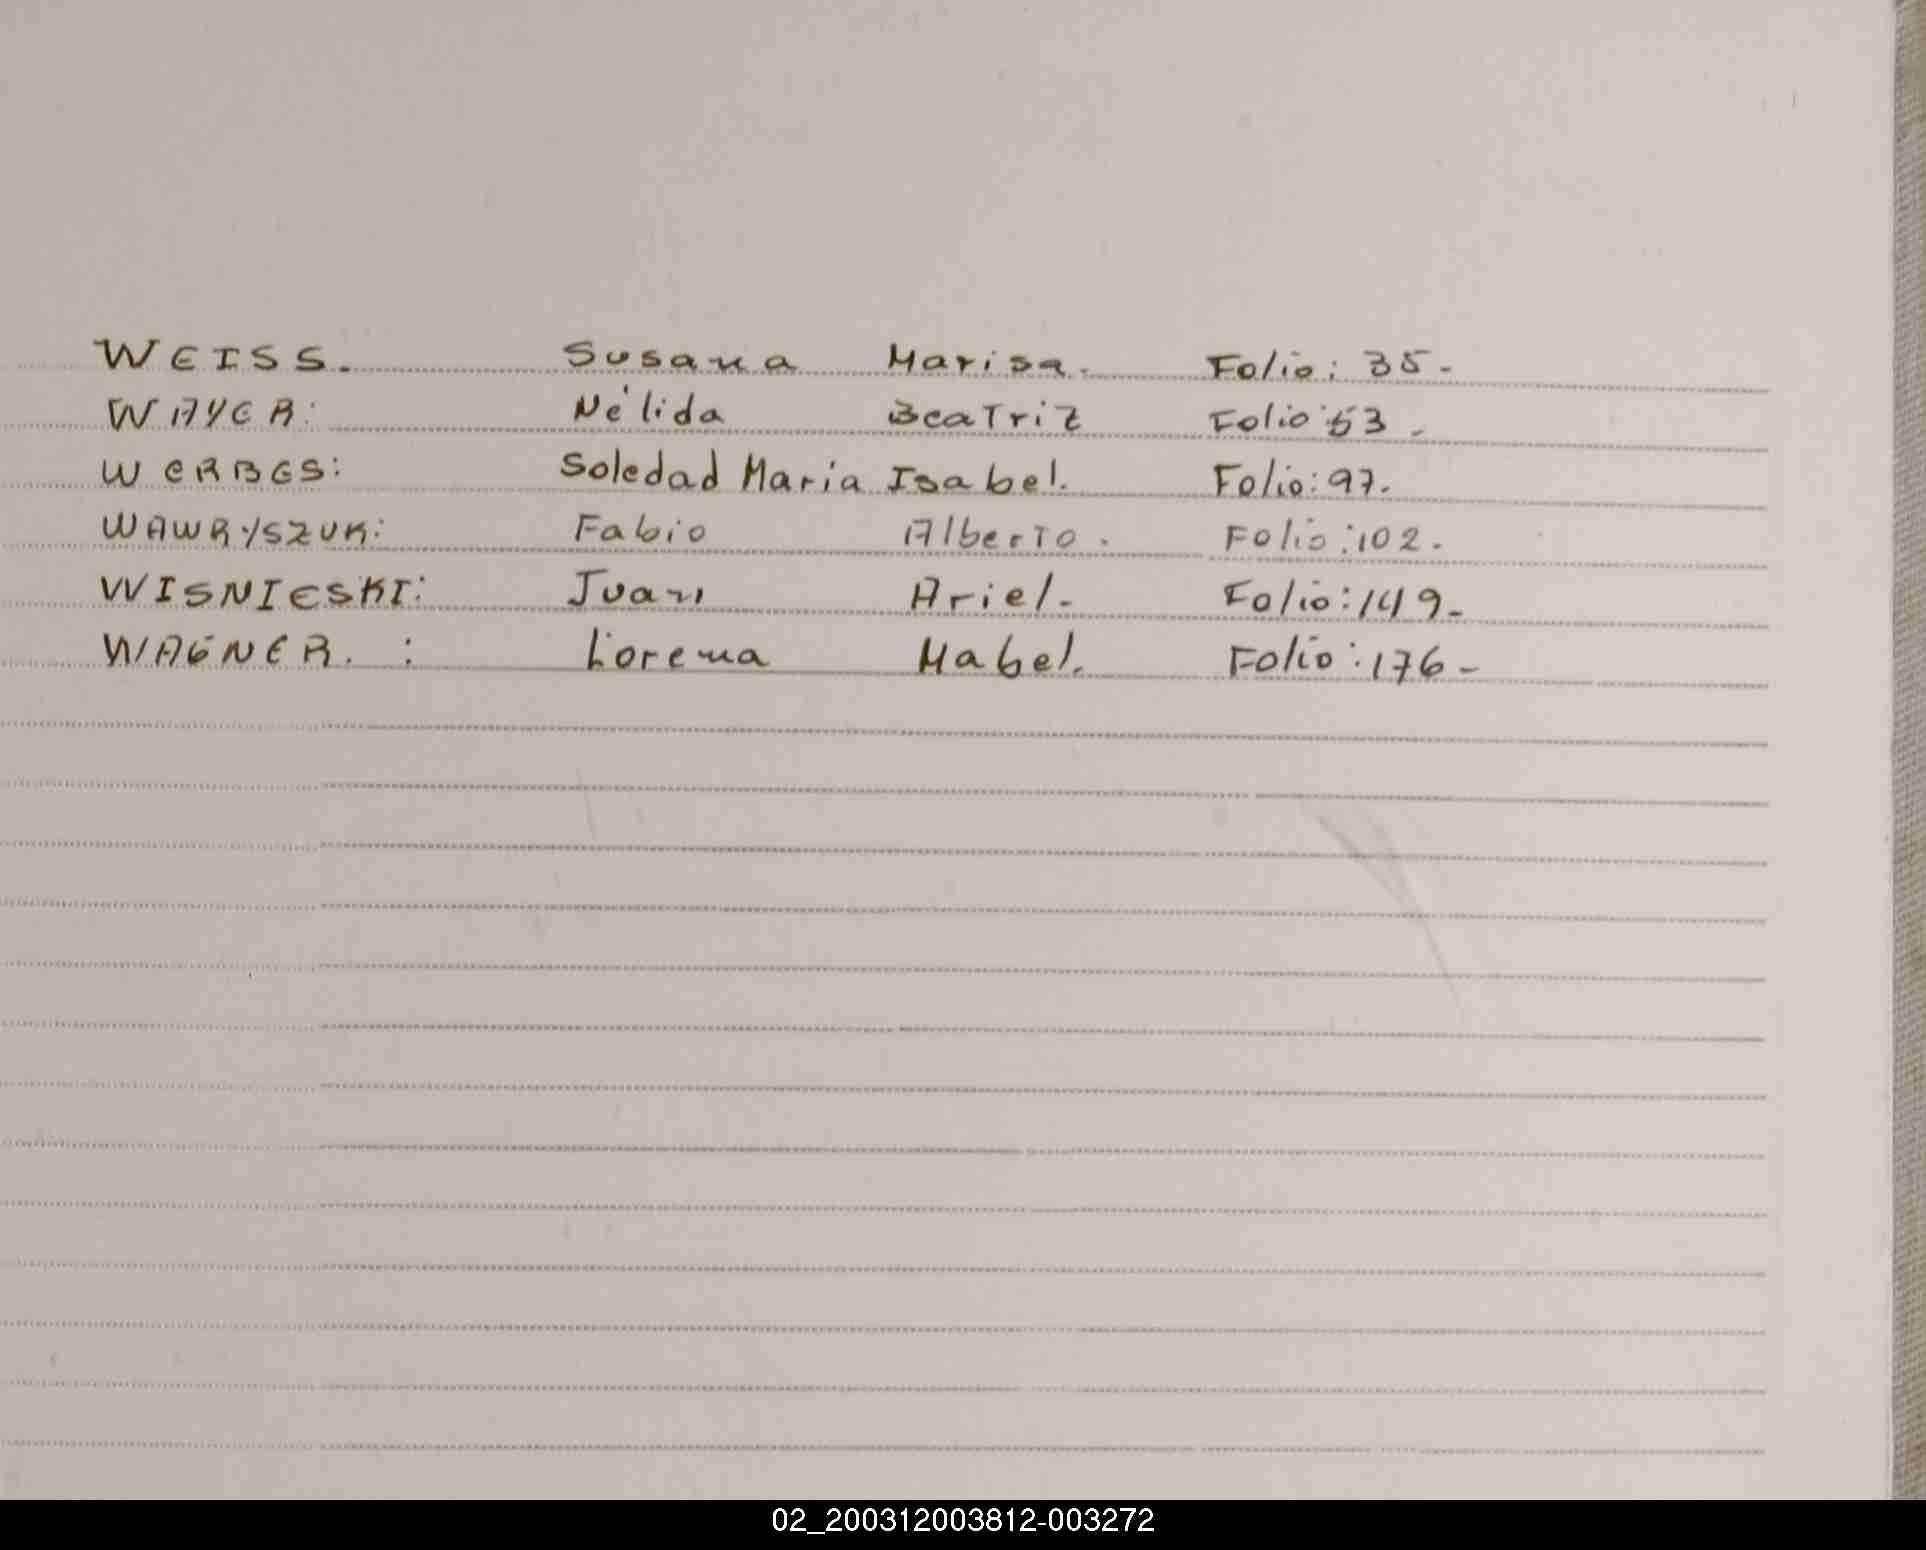 WEISS. Susana Marisa. Folio: 35-
WAYER: Nélida Beatriz Folio: 53-
WERBES: Soledad Maria Isabel. Folio: 97.
WAWRYSZUK: Fabio Alberto. Folio: 102.
WISNIESKI: Juan Ariel- Folio: 149-
WAGNER. : Lorena Mabel. Folio: 176-
02_200312003812-003272